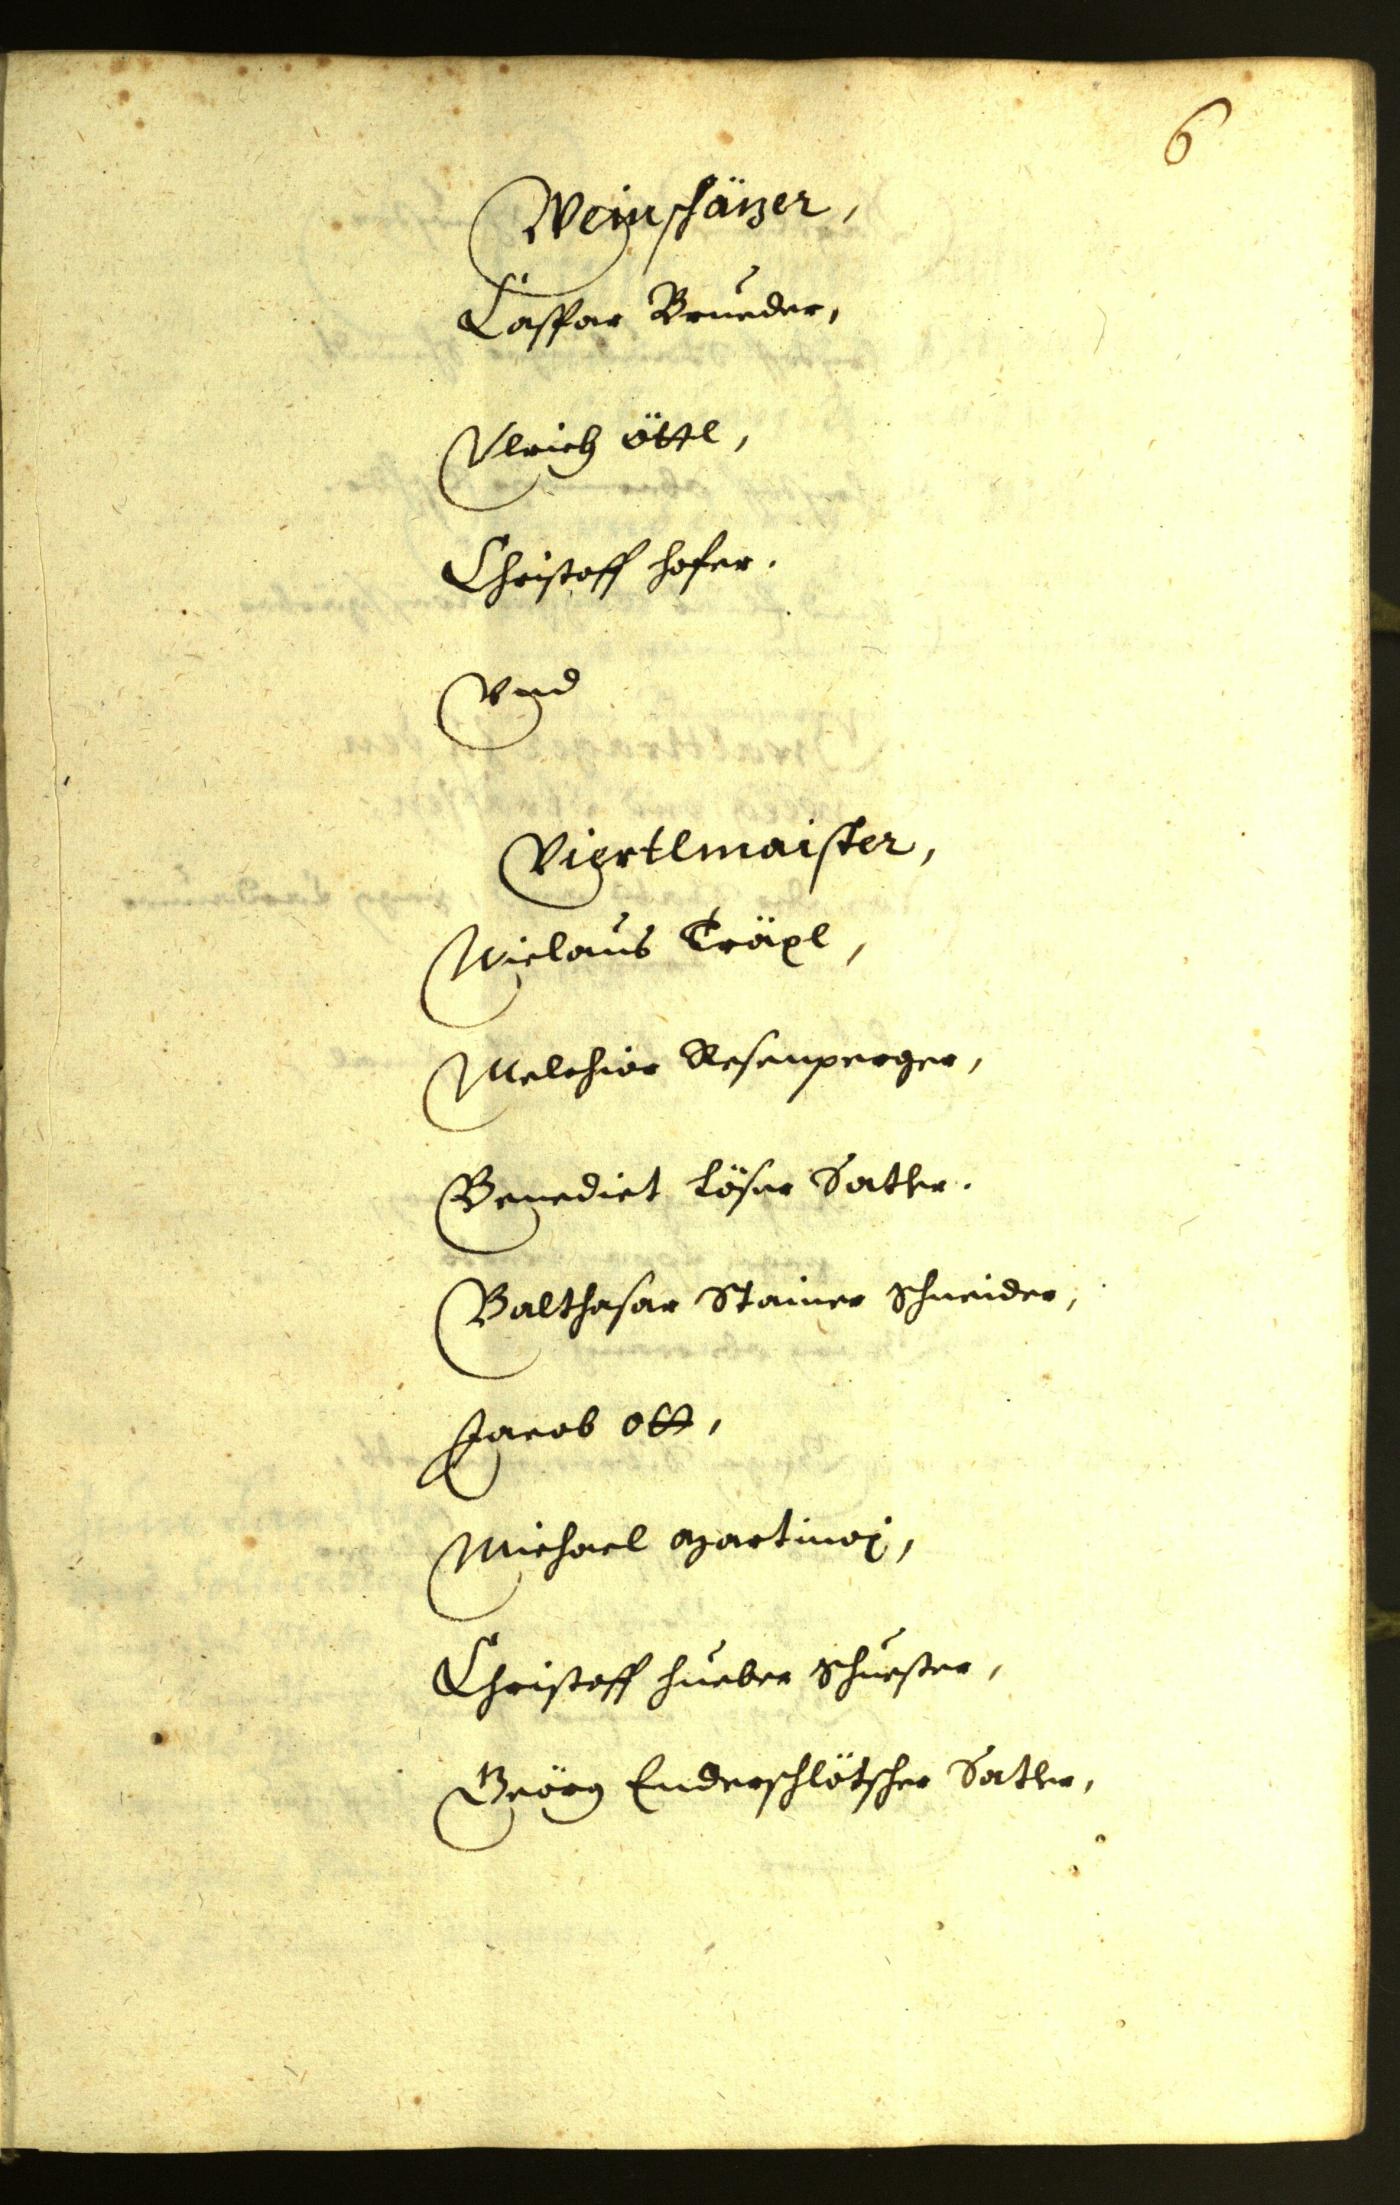 6
Weinschäzer,
Casspar Brueder,
Vlrich öttl,
Christoff hofer.
Vnd
Viertlmaister,
Niclaus Träxl,
Melchior Resenperger,
Benedict Löser Satler.
Balthasar Stainer Schneider,
Jacob Ott,
Michael Martinoi,
Christoff hueber Schuester,
Geörg Enderschlötscher Satler,